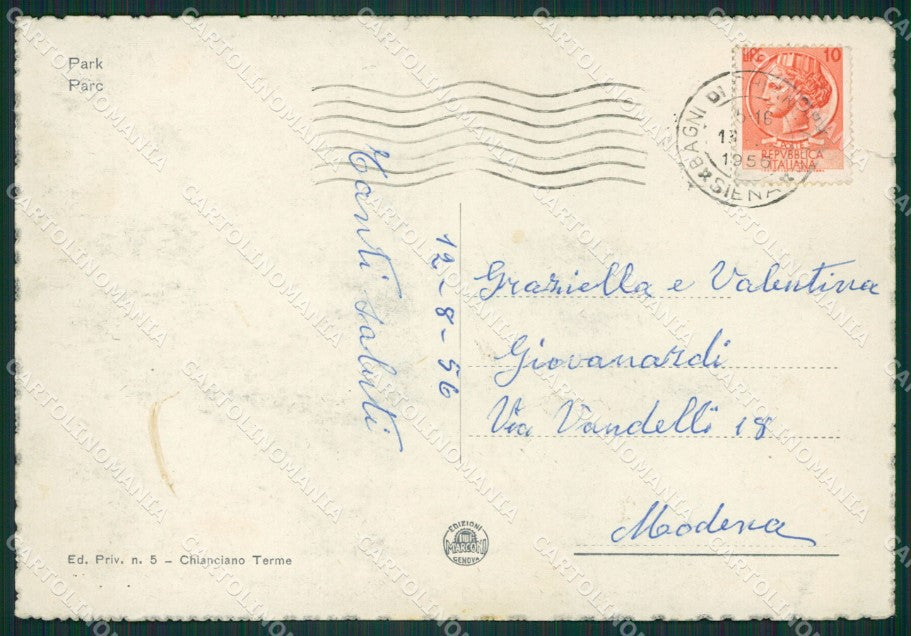 Park
Parc
LIRE 10
REPVBBLICA
ITALIANA
BAGNI DI
1956
SIENA
Tanti saluti
12-8-56
Graziella e Valentina
Giovanardi
Via Vandelli 18
Modena
Ed. Priv. n. 5 - Chianciano Terme
EDIZIONI
MARCONI
GENOVA
CARTOLINOMANIA